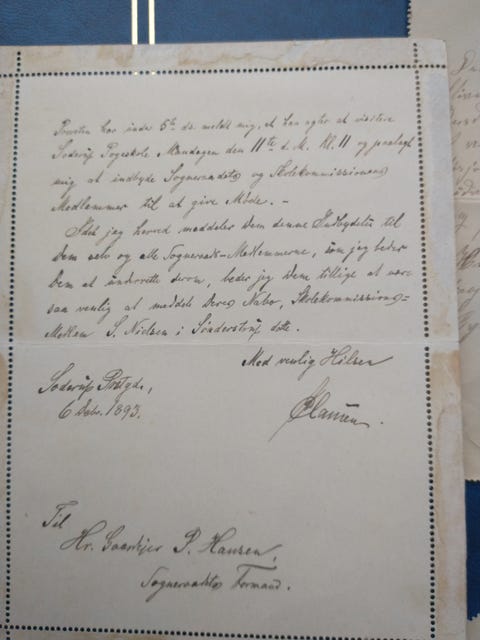 Provsten har under 5te ds. meldt mig, at han agter at visitere
Soderup Pogeskole Mandagen den 11te d. M. Kl. 11 og paalagt
mig at indbyde Sogneraadets og Skolekommissionens
Medlemmer til at give Møde. –
Idet jeg herved meddeler Dem denne Indbydelse til
Dem selv og alle Sogneraads-Medlemmerne, som jeg beder
Dem at underrette derom, beder jeg Dem tillige at være
saa venlig at meddele Deres Nabo, Skolekommissions=
Medlem S. Nielsen i Sønderstrup dette.
Med venlig Hilsen
Clausen.
Soderup Prstgd.,
6 Debr. 1893.
Til
Hr. Gaardejer P. Hansen,
Sogneraadets Formand.